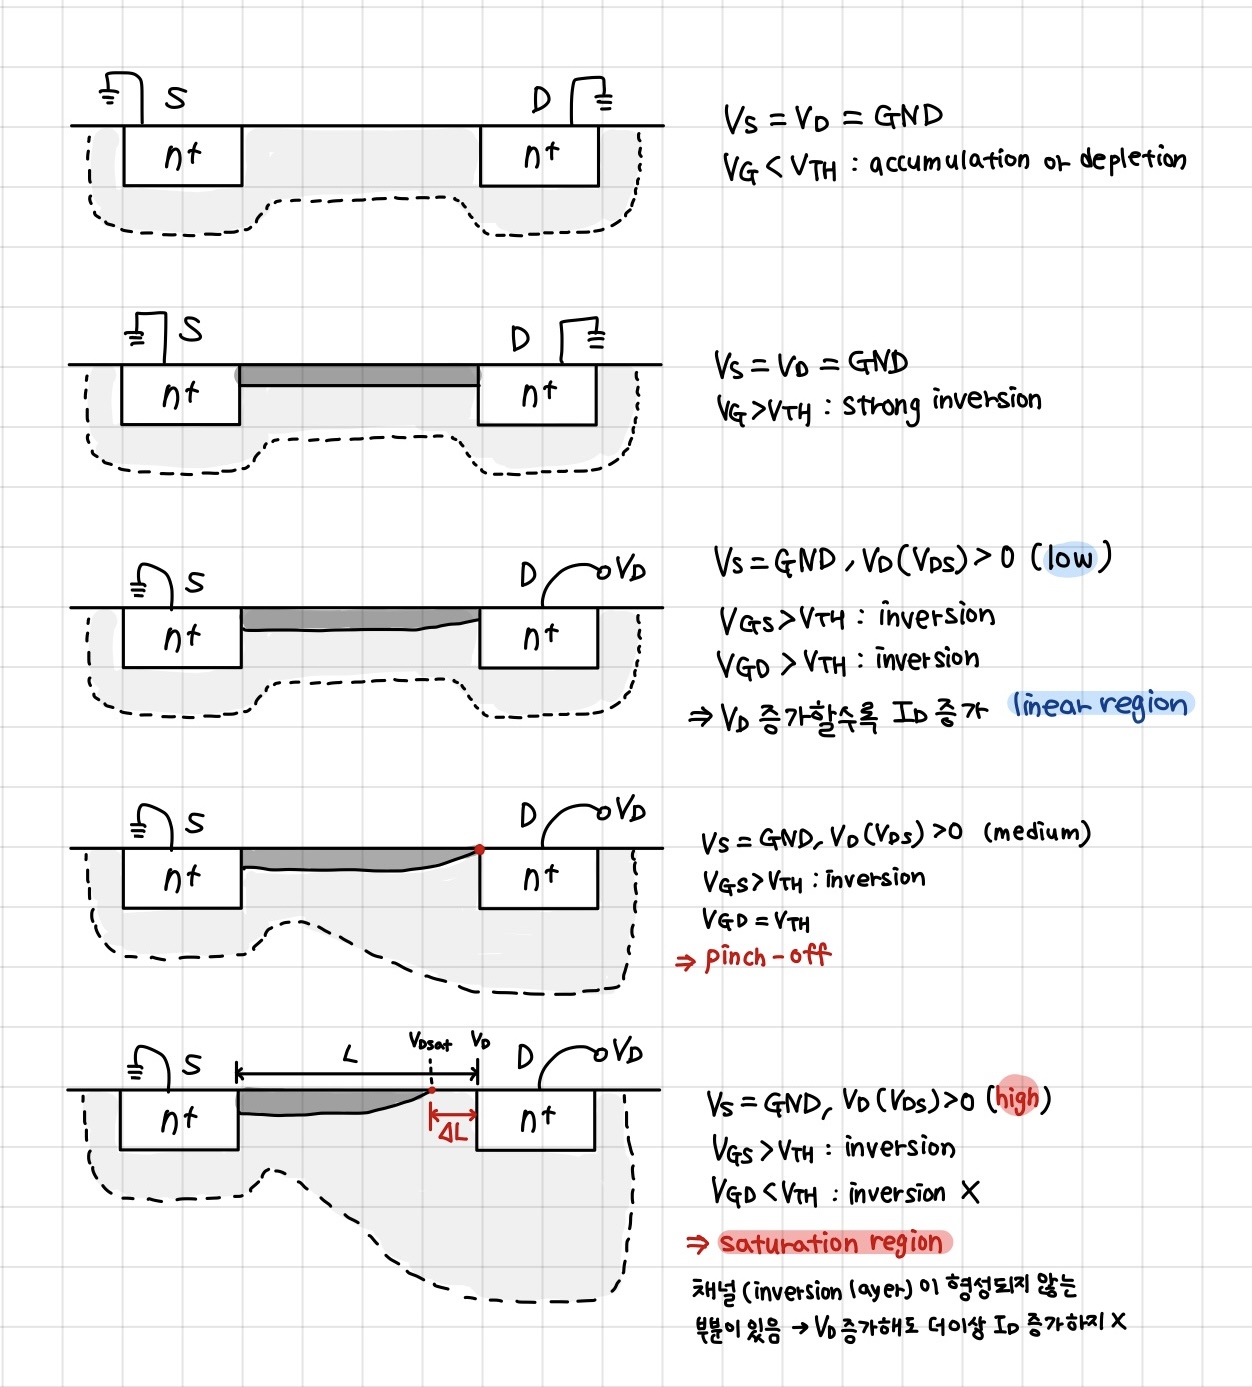 S
D
n+
n+
VS = VD = GND
VG < VTH : accumulation or depletion
S
D
n+
n+
VS = VD = GND
VG > VTH : strong inversion
S
D
VD
n+
n+
VS = GND, VD (VDS) > 0 (low)
VGS > VTH : inversion
VGD > VTH : inversion
⇒ VD 증가할수록 ID 증가 linear region
S
D
VD
n+
n+
VS = GND, VD (VDS) > 0 (medium)
VGS > VTH : inversion
VGD = VTH
⇒ pinch-off
S
L
VDsat
VD
D
VD
n+
ΔL
n+
VS = GND, VD (VDS) > 0 (high)
VGS > VTH : inversion
VGD < VTH : inversion X
⇒ saturation region
채널 (inversion layer) 이 형성되지 않는
부분이 있음 → VD 증가해도 더이상 ID 증가하지 X